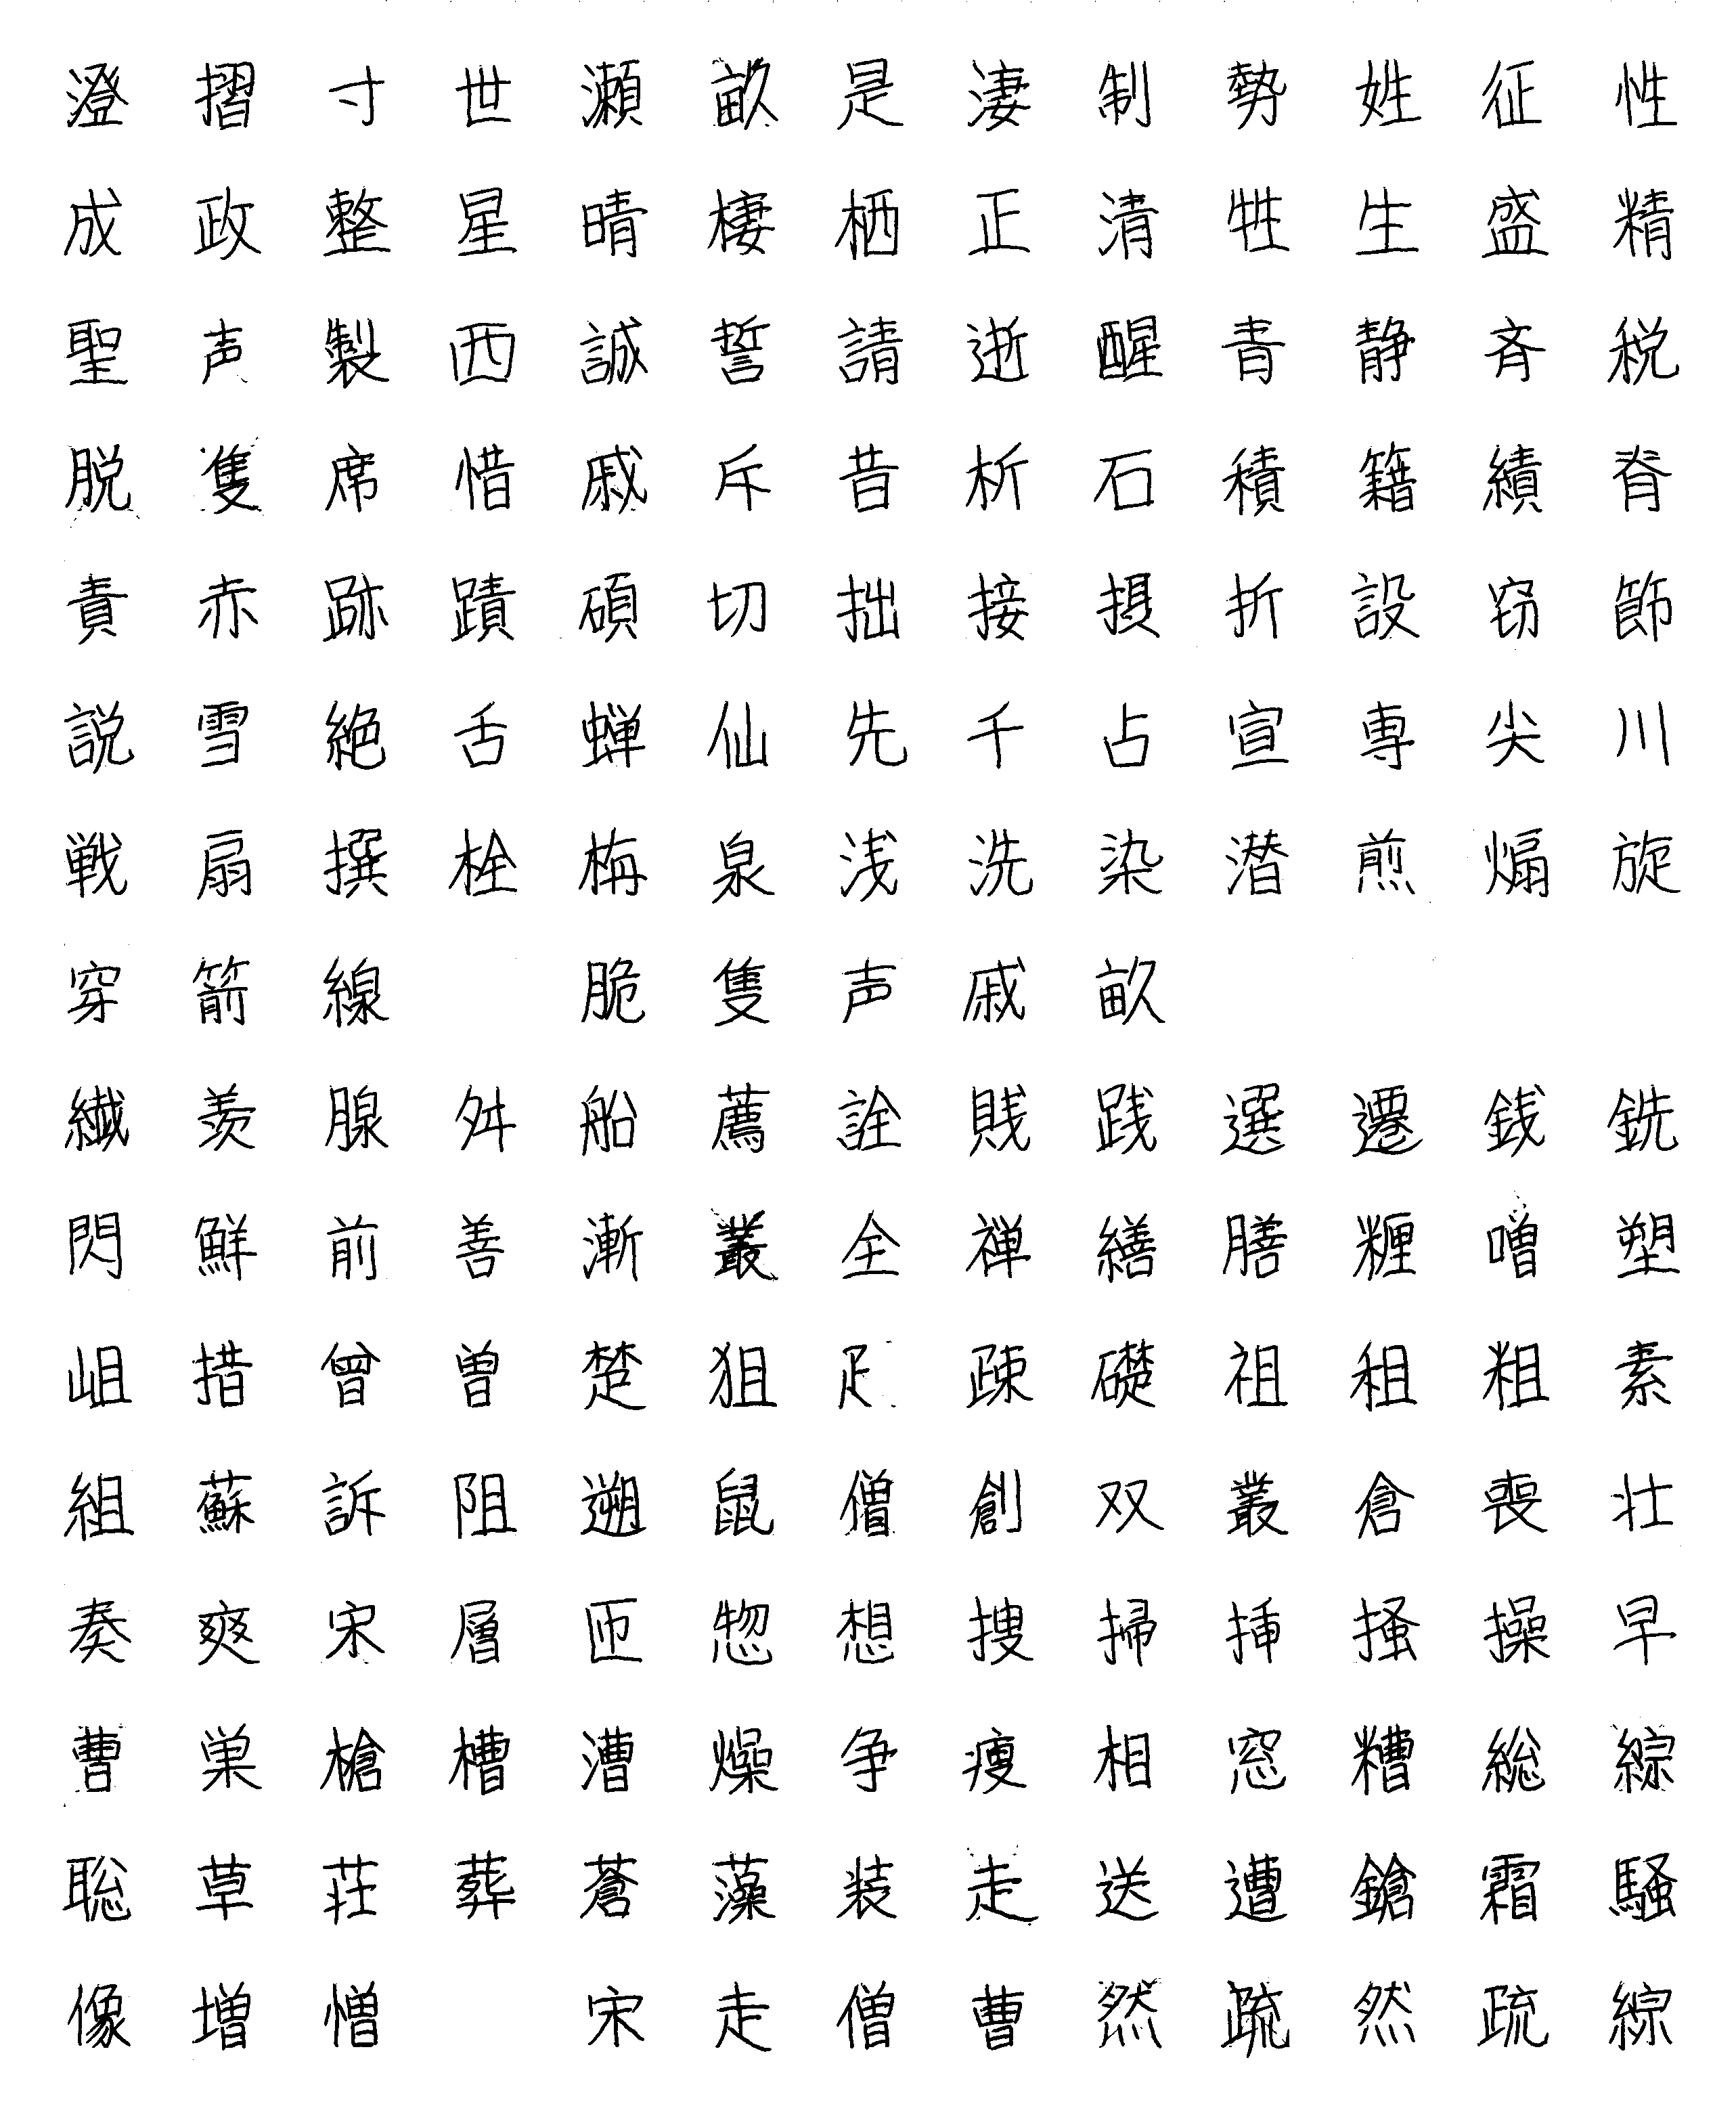 澄 摺 寸 世 瀬 畝 是 淒 制 勢 姓 征 性
成 政 整 星 晴 棲 栖 正 清 牲 生 盛 精
聖 声 製 西 誠 誓 請 逝 醒 青 静 斉 税
脱 隻 席 惜 戚 斥 昔 析 石 積 籍 績 脊
責 赤 跡 蹟 碩 切 拙 接 摂 折 設 窃 節
説 雪 絶 舌 蝉 仙 先 千 占 宣 専 尖 川
戦 扇 撰 栓 栴 泉 浅 洗 染 潜 煎 煽 旋
穿 箭 線 脆 隻 声 戚 畝
繊 羨 腺 舛 船 薦 詮 賎 践 選 遷 銭 銑
閃 鮮 前 善 漸 叢 全 禅 繕 膳 糎 噌 塑
岨 措 曾 曽 楚 狙 疎 礎 祖 租 粗 素
組 蘇 訴 阻 遡 鼠 僧 創 双 叢 倉 喪 壮
奏 爽 宋 層 匝 惣 想 捜 掃 挿 掻 操 早
曹 巣 槍 槽 漕 燥 争 痩 相 窓 糟 総 綜
聡 草 荘 葬 蒼 藻 装 走 送 遭 鎗 霜 騒
像 増 憎 宋 走 僧 曹 然 疏 然 疏 綜